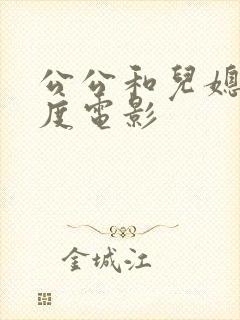 公公和兒媳
度電影
金城江